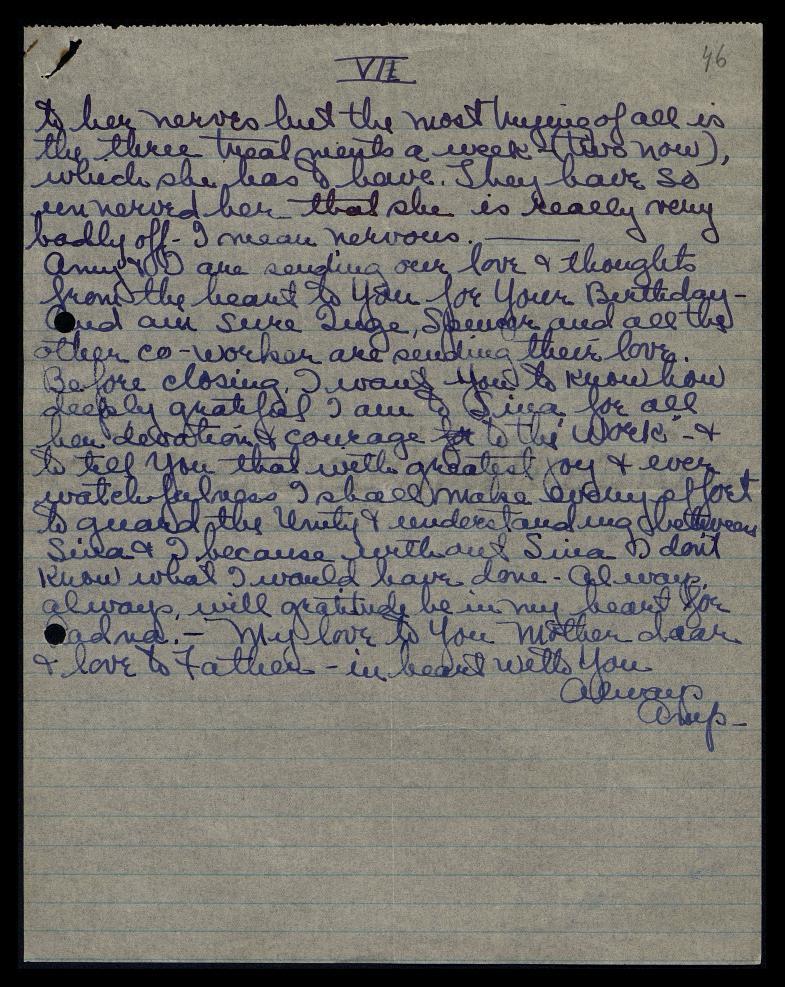 VII
46
to her nerves but the most trying of all is
the three treatments a week - (two now),
which she has to have. They have so
unnerved her that she is really very
badly off - I mean nervous. ———
Amy & I are sending our love & thoughts
from the heart to You for Your Birthday -
and am sure Inge, Spencer and all the
other co-worker are sending their love.
Before closing, I want You to know how
deeply grateful I am to Sina for all
her devotion & courage to the "Work" - &
to tell You that with greatest joy & ever
watchfulness I shall make every effort
to guard the Unity & understanding between
Sina & I because without Sina I don't
know what I would have done - Always,
always, will gratitude be in my heart for
Radna. - My love to You Mother dear
& love to Father - in heart with You
Always